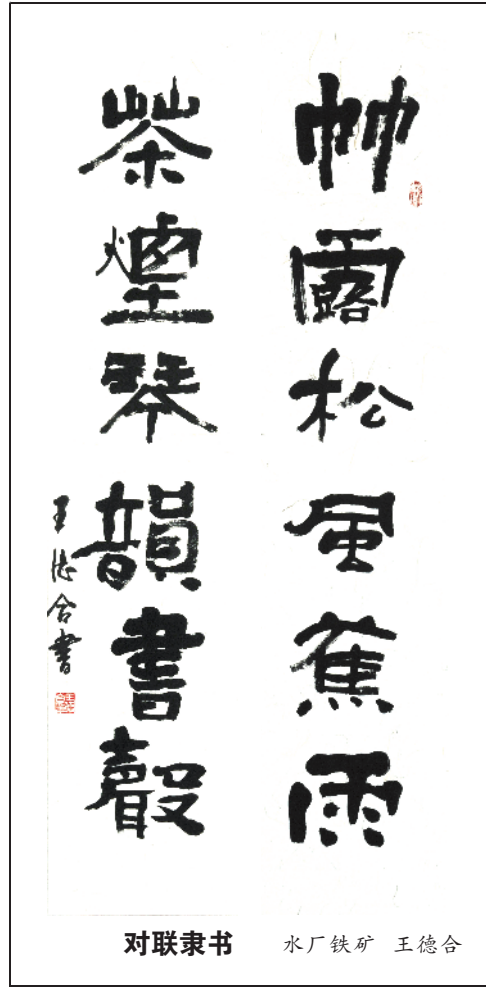 竹露松风蕉雨
茶煙琴韻書聲
王德合書
对联隶书 水厂铁矿 王德合